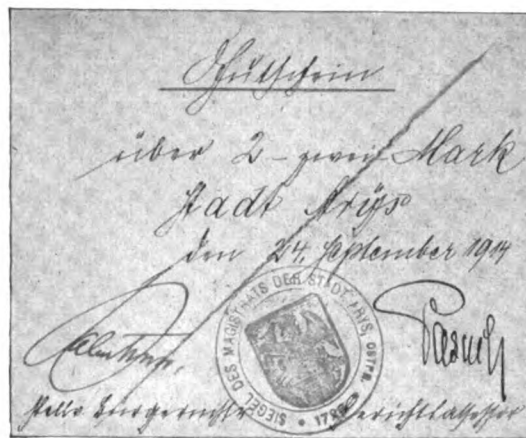 Gutschein
über 2 - zwei Mark
Stadt Arys
den 24. September 1914
SIEGEL DES MAGISTRATS DER STADT ARYS, OSTPR.
Stellv. Bürgermeister Gerichtsassessor